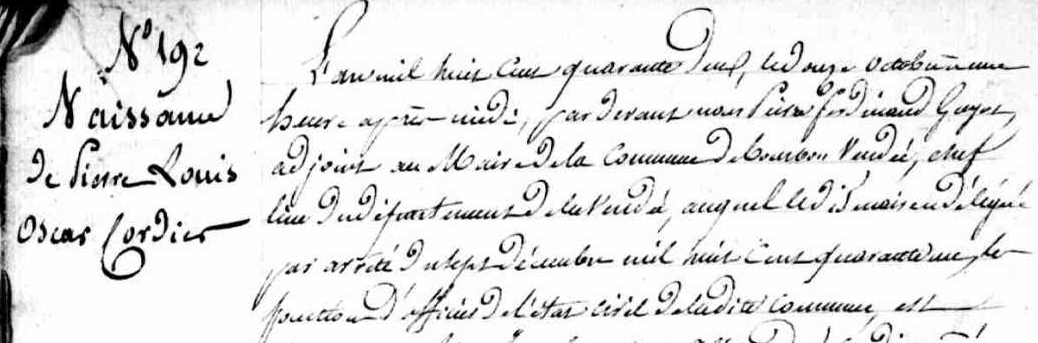 N° 192
Naissance
de Pierre Louis
Oscar Cordier
L'an mil huit cent quarante deux, le douze octobre une
heure après midi, par devant nous Pierre ferdinand Guyot,
adjoint au Maire de la Commune de bourbon Vendée, chef
lieu du département de la Vendée, auquel le dit maire a délégué
par arrêté du sept décembre mil huit cent quarante un, les
fonctions d'officier de l'état civil de la dite Commune, est